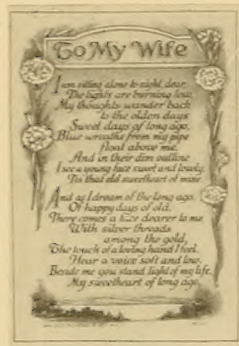 To My Wife
I am sitting alone to-night, dear.
The lights are burning low,
My thoughts wander back
to the olden days
Sweet days of long ago.
Blue wreaths from my pipe
float above me,
And in their dim outline
I see a young face sweet and lovely,
'Tis that old sweetheart of mine.
And as I dream of the long ago.
Of happy days of old,
There comes a face dearer to me
With silver threads
among the gold.
The touch of a loving hand I feel,
Hear a voice soft and low,
Beside me you stand, light of my life,
My sweetheart of long ago.